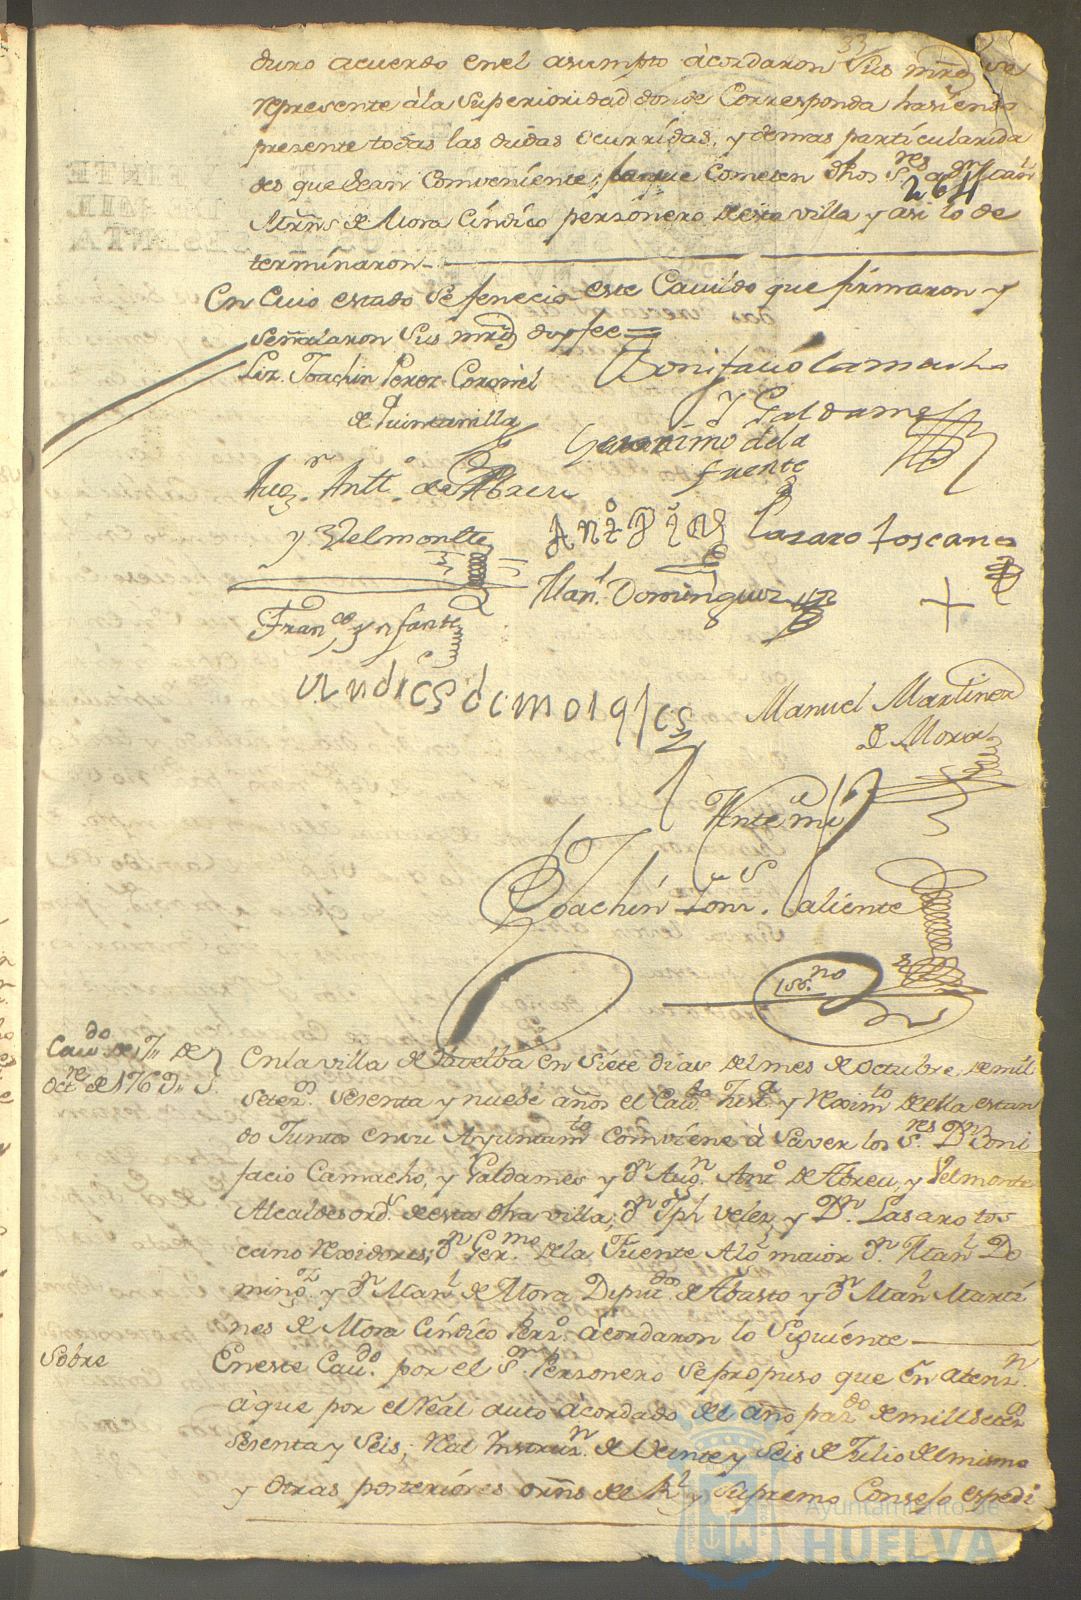 33
duro acuerdo enel asumpto àcordaron Sus mrds se
represente àla Superioridad donde Corresponda hasiendo
presente todas las dudas ocurridas, y demas particularida
des que Sean Conveniente; loque Cometen dhos Sres a Dn Manl
264
Mrñs de Mora Cindico personero de esta villa y asi lo de
terminaron
En Cuio estado se fenecio este Cavildo que firmaron y
señalaron Sus mrds doy fee
Liz. Joachin Perez Coronel
de Quintanilla
Bonifacio Camacho
y Galdames
Geronimo dela
fuente
Augn. Antto. de Abreu
y Velmonte
Lazaro toscano
Manl. Dominguez
Franco ynfante
Andres de morales
Manuel Martinez
de Mora
Ante mi
Joachin Caliente
ssno
Cavdo de 7 de
Octre de 1769
Enla villa de Huelba en Siete dias del mes de Octubre de mil
Seter. Sesenta y nuebe años el Cavdo Justa y Reximto de ella estan
do Juntos en su Ayuntamto Combiene à Saver los Sres Dn Boni
facio Camacho, y Galdames y Dn Augn Anto de Abreu, y Velmonte
Alcaldes ords de esta dha villa; Dn Jph Velez, y Dn. Lasaro tos
cano Rexidores; Dn Germo de la Fuente Algl maior Dn. Manl Do
mingz y Dn Manl de Mora Diputdos de Abasto y Dn Manl Marti
nes de Mora Cindico Perzo. àcordaron lo Siguiente
Sobre
En este Cavdo. por el Sr Personero se propuso que en atenzn.
à que por el Real auto àcordado del año pazdo de mill seter
Sesenta y Seis, Real Instruzn de Veinte y Seis de Julio del mismo
y otras posteriores orñs del Rl y Supremo Consejo espedi
Ayuntamiento de
HUELVA